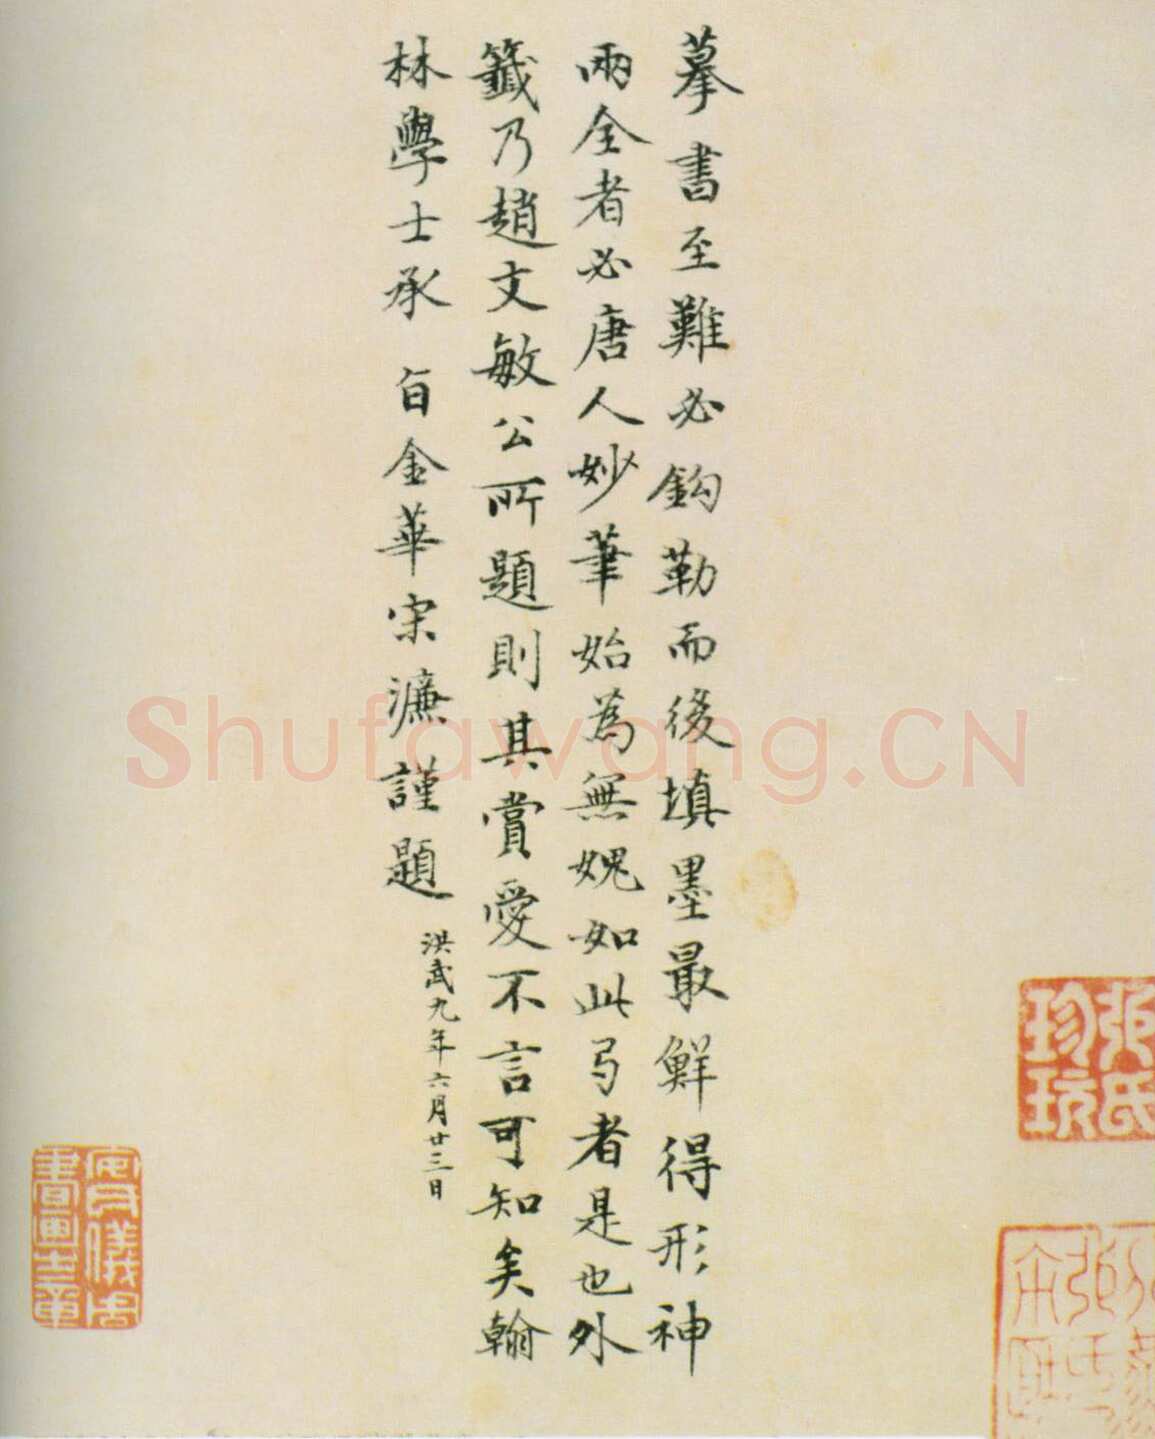 摹書至難必鈎勒而後填墨最鮮得形神
兩全者必唐人妙筆始為無媿如此弓者是也外
籤乃趙文敏公所題則其賞愛不言可知矣翰
林學士承旨金華宋濂謹題
洪武九年六月廿三日
張氏
珍玩
儀周
書畫之章
Shufawang.CN